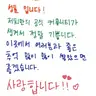 성들 입니다!
저희만의 공식 커뮤니티가
생겨서 정말 기쁩니다.
이곳에서 여러분과 좋은
추억 많이 많이 쌓았으면
좋겠습니다.
사랑합니다!!